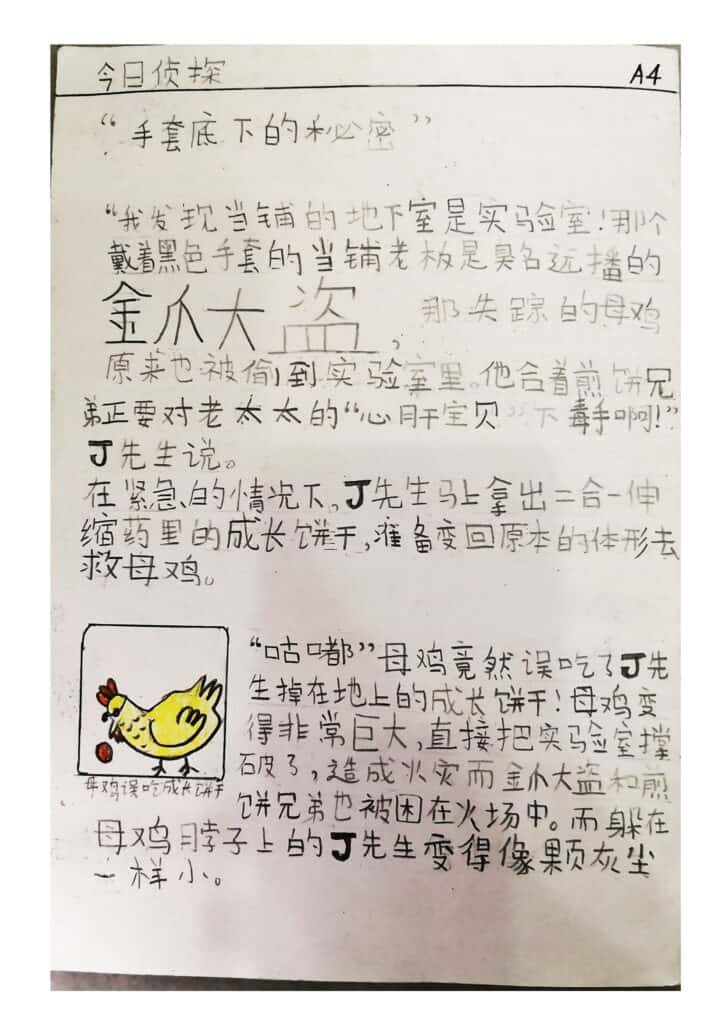 今日侦探 A4
“手套底下的秘密”
“我发现当铺的地下室是实验室！那个
戴着黑色手套的当铺老板是臭名远播的
金爪大盗，那失踪的母鸡
原来也被偷到实验室里。他合着煎饼兄
弟正要对老太太的“心肝宝贝”下毒手啊！”
J先生说。
在紧急的情况下，J先生马上拿出二合一伸
缩药里的成长饼干，准备变回原本的体形去
救母鸡。
“咕嘟”母鸡竟然误吃了J先
生掉在地上的成长饼干！母鸡变
得非常巨大，直接把实验室撑
破了，造成火灾而金爪大盗和煎
饼兄弟也被困在火场中。而躲在
母鸡脖子上的J先生变得像颗灰尘
一样小。
母鸡误吃成长饼干